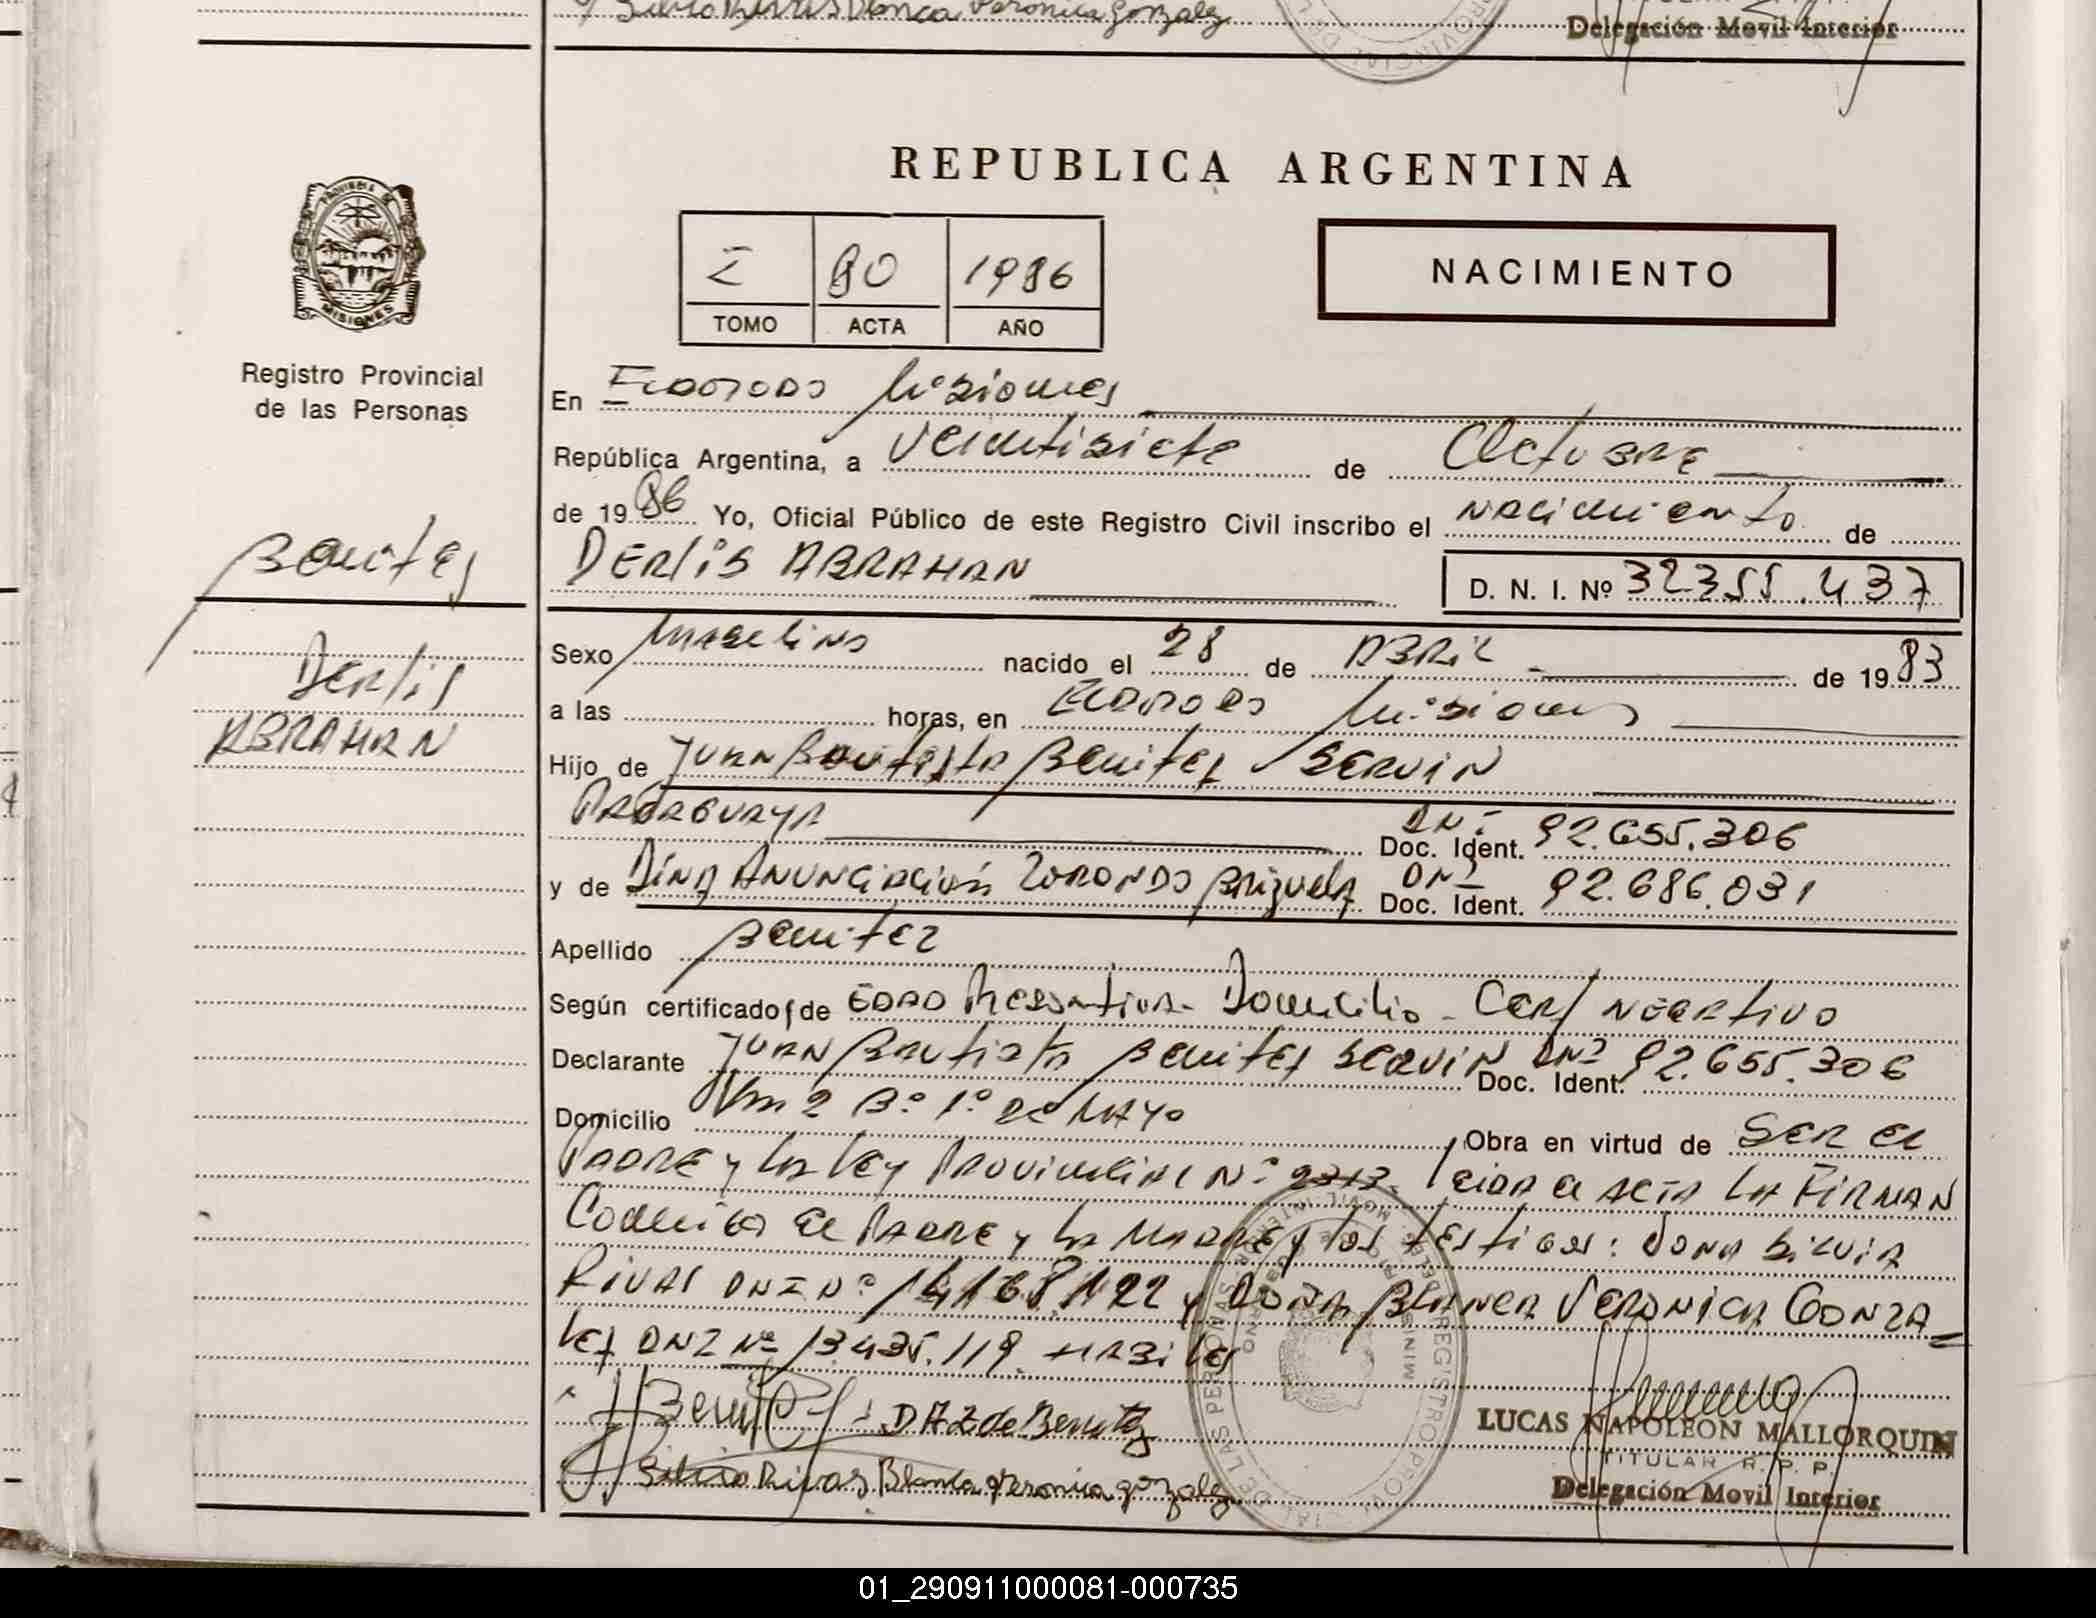 Silvia Rivas Blanca Veronica Gonzalez
Delegación Movil Interior
REPUBLICA ARGENTINA
I 80 1986
TOMO ACTA AÑO
NACIMIENTO
PROVINCIA DE
MISIONES
Registro Provincial
de las Personas
Benites
Derlis
ABRAHAN
En Eldorado Misiones
República Argentina, a Veintisiete de Octubre
de 1986 Yo, Oficial Público de este Registro Civil inscribo el nacimiento de
DERLIS ABRAHAN
D. N. I. Nº 32355.437
Sexo Masculino nacido el 28 de ABRIL de 1983
a las horas, en Eldorado Misiones
Hijo de JUAN Bautista Benitez SERVIN
PARAGUAYA DNI Doc. Ident. 92.655.306
y de Dina ANUNCIACIÓN Zorondo Brizuela DNI Doc. Ident. 92.686.031
Apellido Benitez
Según certificado de EDAD Presuntiva - Domicilio - Cert NEGATIVO
Declarante JUAN Bautista Benitez SERVIN DNI Doc. Ident. 92.655.306
Domicilio Km 2 Bº 1º de MAYO Obra en virtud de SER el
PADRE y la Ley Provincial Nº 2313. Leida el ACTA LA FIRMAN
Conmigo el PADRE y la MADRE y los testigos: dona SILVIA
RIVAS DNI Nº 14168122 y DOÑA BLANCA VERONICA GONZA=
lez DNI Nº 13435.119. HABILES
Benitez DAZ de Benitez
Silvia Rivas Blanca Veronica Gonzalez
LUCAS NAPOLEON MALLORQUIN
TITULAR R. P. P.
Delegación Movil Interior
01_290911000081-000735